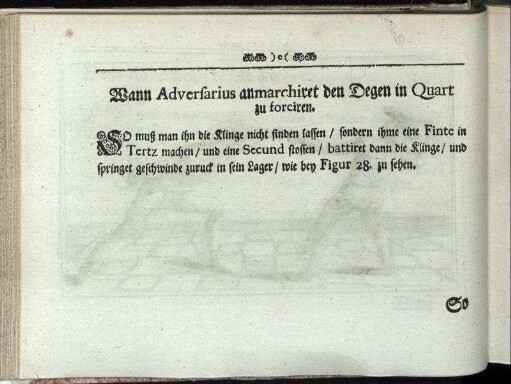 )o(
Wann Adversarius anmarchiret den Degen in Quart
zu forciren.
SO muß man ihn die Klinge nicht finden lassen / sondern ihme eine Finte in
Tertz machen / und eine Secund stossen / battiret dann die Klinge / und
springet geschwinde zuruck in sein Lager / wie bey Figur 28. zu sehen.
So